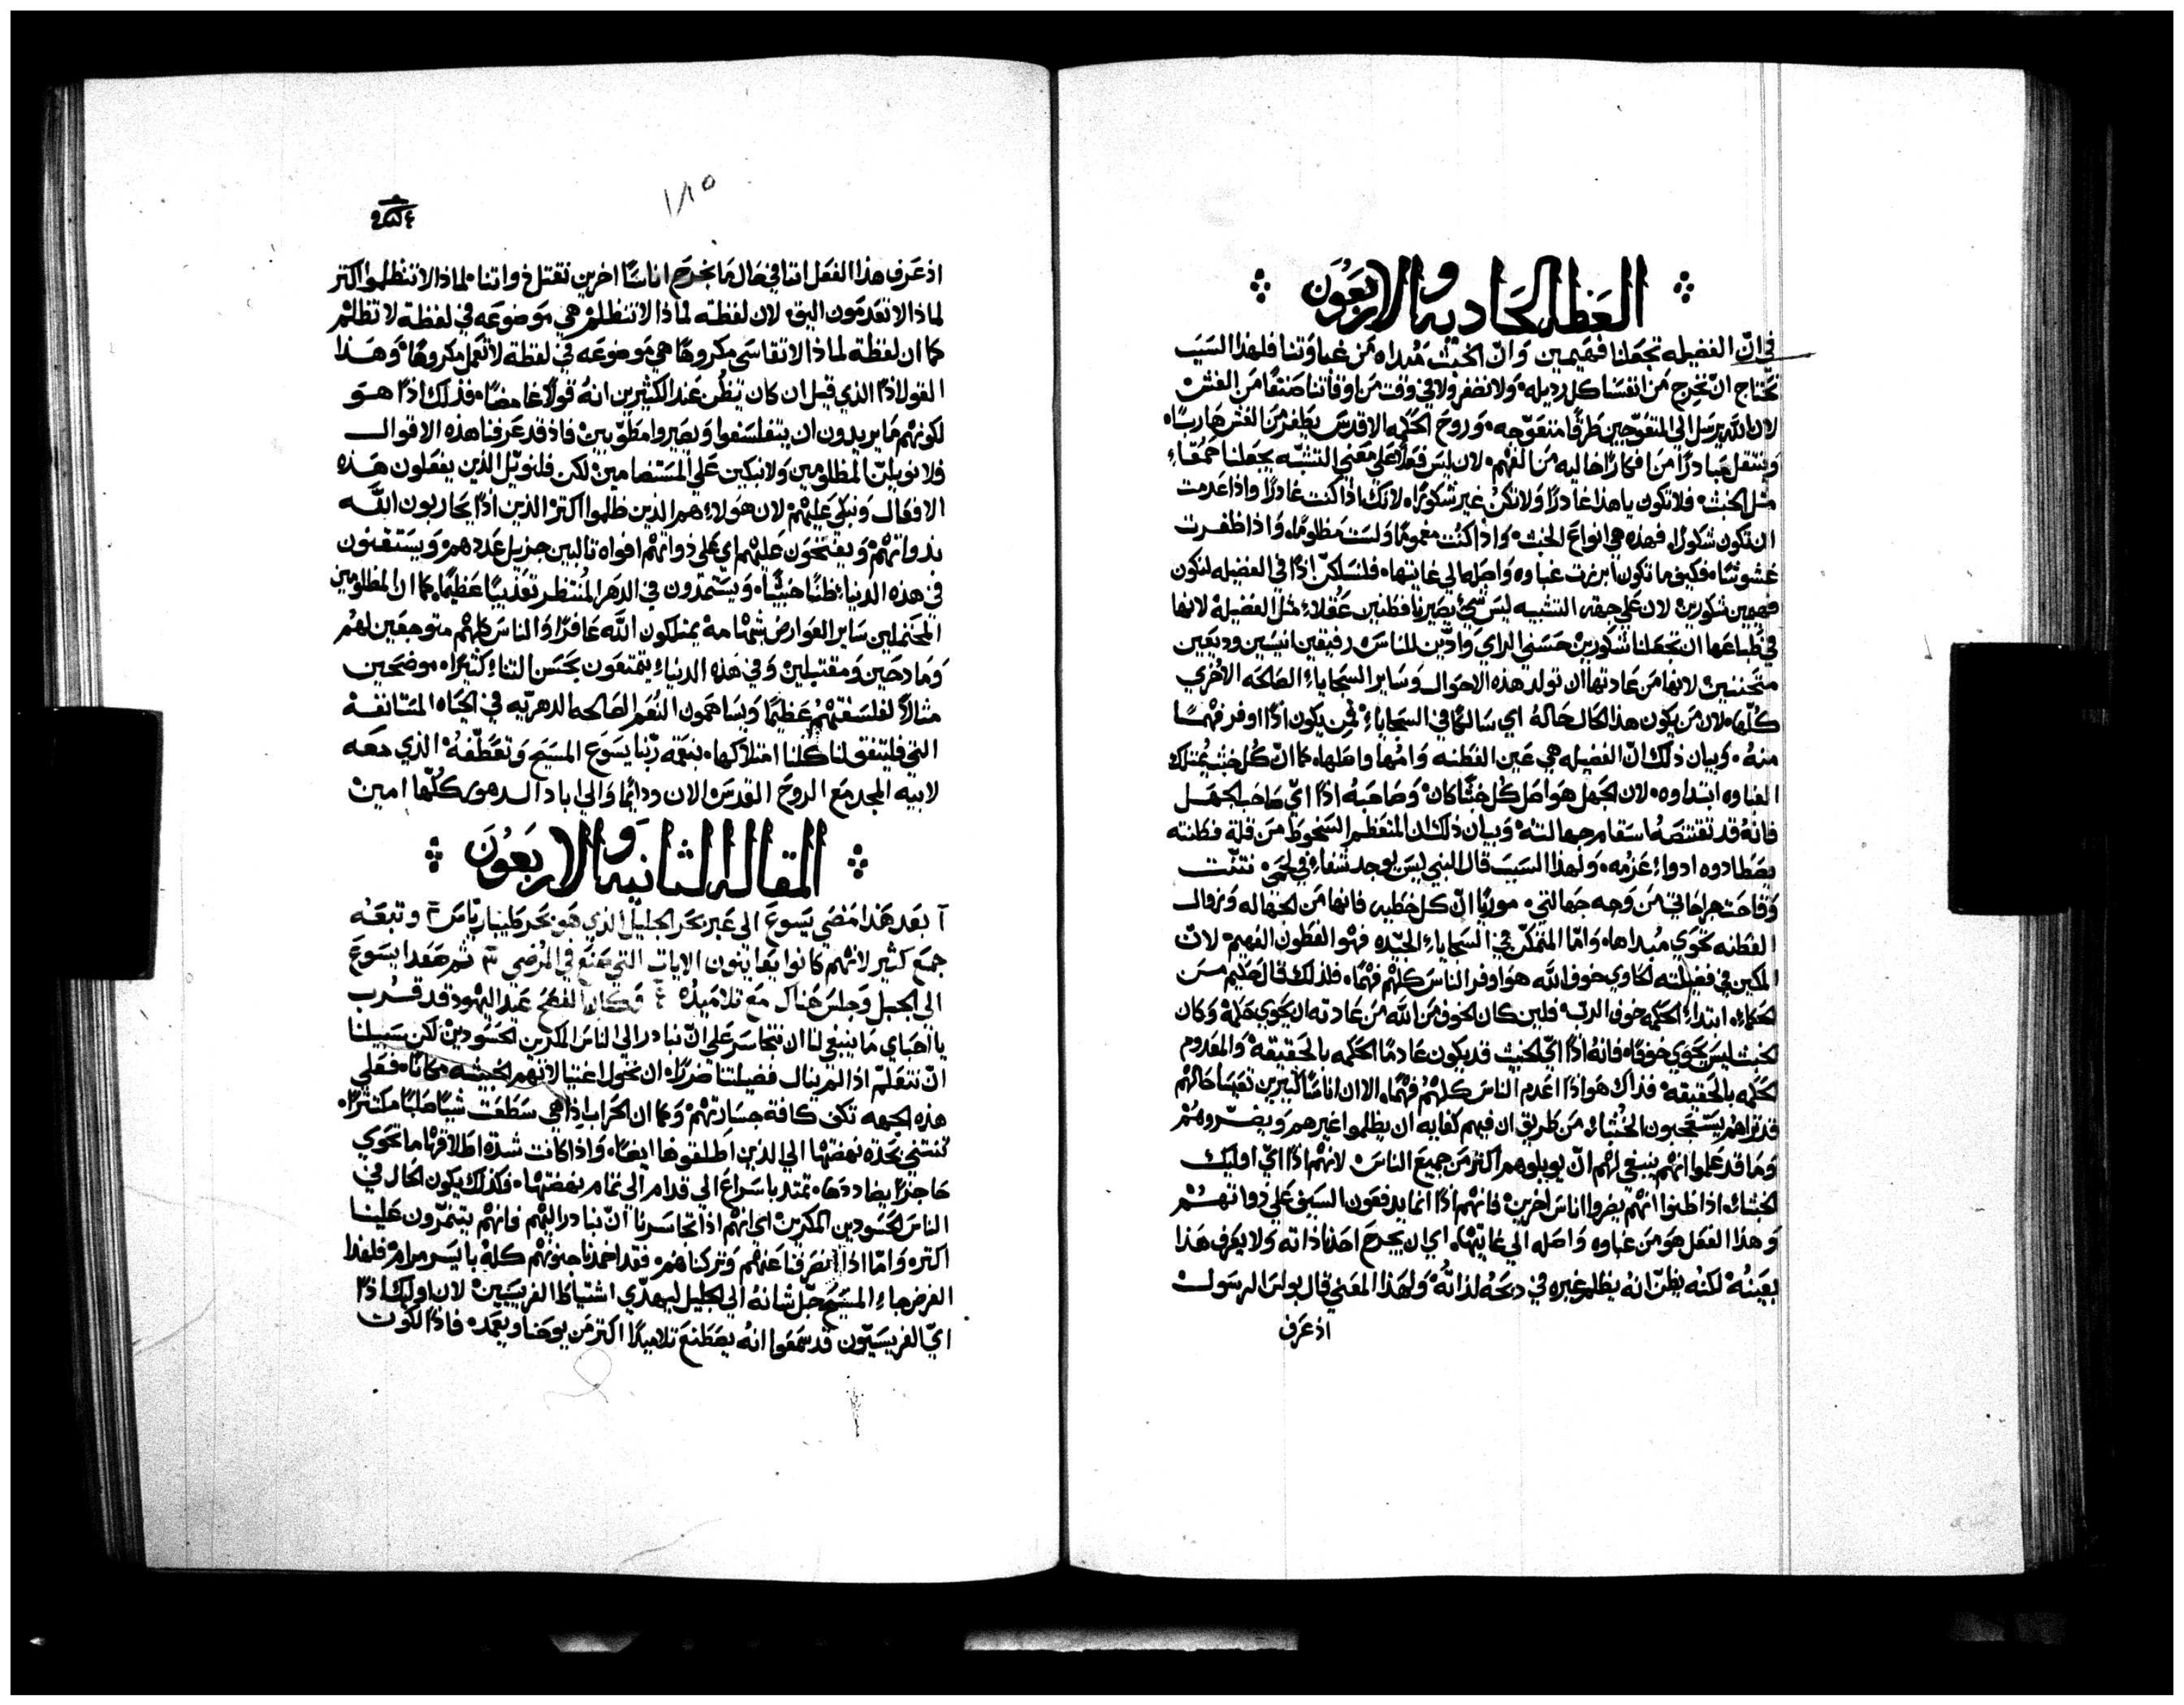 العظه الحاديه والاربعون
في انّ الفضيله تجعلنا فهيمين وَانّ الخبث مُبداه من غباوتنا فلهذا السَبَب
نحتاج ان نخرج من انفسنا كل رديله ولا نضفر ولا في وقت من اوقاتنا صنفًا من الغش
لان الله يرسل الي المتعوّجين طرقًا متعوّجه وروح الحكمه الاقدس يطفر من الغش هاربًا
وينتقل مبادرًا من افكارًا خاليه من الفهم لان ليس فعلًا علي معني التشبّه يجعلنا حمقاء
مثل الخبث فلا تكون يا هذا غادرًا ولا تكن غير شكورًا لانك اذا كنت غادرًا واذا عدمت
ان تكون شكورًا فهذه هي انواع الخبث واذا كنت مغمومًا ولست مظلومًا واذا ظفرت
غشوشًا فكيف ما تكون ابرزت غباوه واصله الي غايتها فلنسلكن اذًا في الفضيله لنكون
فهمين شكورين لان علي جهة التشبيه ليس شي يصيرنا فطنين عقلاء مثل الفضيله لانها
في طباعها ان تجعلنا شكورين حسني الراي وادّين للناس رفيقين انيسين وديعين
متحننين لانها من عادتها ان تولد هذه الاحوال وساير السجاياء الصالحه الاخري
كلّها لان من يكون هذا الحال حاله اي سالمًا في السجاياء فمن يكون اذًا اوفر فهمًا
منه وبيان ذلك انّ الفضيله هي عين الفطنه وامّها واصلها كما انّ كل خبث يمتلك
الغباوه ابتداوه لان الجهل هو اصل كل خبثًا كان وصاحبه اذًا ايّ صاحب الجهل
فانهُ قد تقتنصهُ اسقام جهالته وبيان ذلك ان المتعظم السخوط من قلة فطنته
يصطادوه ادواء عزمه ولهذا السبب قال النبي ليس يوجد شفاء في لحمي نتنت
وفاحت جراحاتي من وجه جهالتي موريًا انّ كل خطيه فانها من الجهاله وزوال
الفطنه تحوي مُبداها وامّا المتمكّن في السجاياء الجيّده فهو الفطون الفهيم لانّ
المكين في فضيلته الحاوي خوف الله هو اوفر الناس كلهم فهمًا فلذلك قال حكيم من
الحكماء ابتداء الحكمه خوف الرب فلين كان الخوف من الله من عادته ان يحوي حكمة وكان
الخبث ليس يحوي خوفًا فانهُ اذًا اي الخبث قد يكون عادمًا الحكمه بالحقيقة والمعدوم
الحكمه بالحقيقه فذاك هو اذًا اعدم الناس كلهم فهمًا الا ان اناسًا كثيرين تعبًا حالهم
قد نراهم يستعجبون الخبثاء من طريق ان فيهم كفايه ان يظلموا غيرهم ويضرّوهم
وما قد علموا انهم ينبغي لهم ان يويلوهم اكثر من جميع الناس لانهم اذًا اي اوليك
الخبثاء اذا ظنوا انهم يضروا اناس اخرين فانهم اذًا انما يدفعون السيف علي ذواتهم
وهذا الفعل هو من غباوه واصله الي غايتها اي ان يجرح احدًا ذاته ولا يعرف هذا
بعينه لكنه يظن انه يظلم غيره في ذبحه لذاته ولهذا المعني قال بولس الرسول
اذ عرف
١٨٥
اذ عرف هذا الفعل اننا في حال ما نجرح اناسًا اخرين نقتل ذواتنا لماذا لا تنظلموا اكثر
لماذا لا تعدمون اليق لان لفظة لماذا لا تنظلم هي موضوعه في لفظة لا تظلم
كما ان لفظة لماذا لا تقاسي مكروهًا هي موضوعه في لفظة لا تعمل مكروهًا وهذا
القول اذًا الذي قيل ان كان يظن عند الكثيرين انهُ قولًا غامضًا فذلك اذًا هو
لكونهم ما يريدون ان يتفلسفوا ويصيروا مطوّبين فاذ قد عرفنا هذه الاقوال
فلا نويلنّ المظلومين ولا نبكين علي المستضامين لكن فلنويّل الذين يفعلون هذه
الافعال ونبكي عليهم لان هولاء هم الذين ظلموا اكثر الذين اذًا يحاربون الله
بذواتهم ويفتحون عليهم اي علي ذواتهم افواه ثالبين جزيل عددهم ويستقنون
في هذه الدنيا ظنًا خبيثًا ويستمدون في الدهر المُنتظر تعذيبًا عظيمًا كما ان المظلومين
المحتملين ساير العوارض بشهامة يمتلكون الله غافرًا والناس كلهم متوجعين لهم
ومادحين ومقتبلين وفي هذه الدنيا يتمتعون بحسن الثناء كثيرًا موضحين
مثالًا لفلسفتهم عظيمًا ويساهمون النعم الصالحه الدهريّه في الحياه المستانفة
التي فليتفق لنا كلنا امتلاكها بنعمة ربّنا يسوع المسيح وتعطّفهُ الذي معه
لابيه المجد مع الروح القدس الان ودايمًا والي اباد الدهور كلّها امين
المقاله الثانيه والاربعون
آ بعد هذا مضي يسوع الي عبر بحر الجليل الذي هو بحر طيباريّاس وتبعه
جمع كثير لانهم كانوا يعاينون الايات التي صنع في المرضي ثم صعد يسوع
الي الجبل وجلس هناك مع تلاميذه فكان الفصح عيد اليهود قد قرب
يا احباي ما ينبغي لنا ان نتجاسر علي انّ نبادر الي الناس المكرين الحسودين لكن سبيلنا
انّ نتعلم اذا لم ينال فضيلتنا ضررًا ان نخول اغتيالاتهم الخبيثه مكانًا فعلي
هذه الجهه تكف كافة جسارتهم وكما ان الحراب اذا هي سطعت شيًا صلبًا مكتنزًا
تنتني بحدّة نهضتها الي الذين اطلقوها ايضًا واذا كانت شدة اطلاقها ما تحوي
حاجزًا يضاددها تمتد باسراع الي قدام الي تمام نهضتها فكذلك يكون الحال في
الناس الحسودين المكرين اي انهم اذا تجاسرنا انّ نبادر اليهم فانهم يتنمّرون علينا
اكثر وامّا اذا انصرفنا عنهم وتركناهم فقد اخمدنا جنونهم كلهُ بايسر مرام فلهذا
الغرض جاء المسيح جلّ شانهُ الي الجليل ليهدّي اشتياط الفريسيين لان اوليك اذًا
ايّ الفريسيّون قد سمعوا انهُ يصطنع تلاميذًا اكثر من يوحنا ويعمد فاذا لكوت